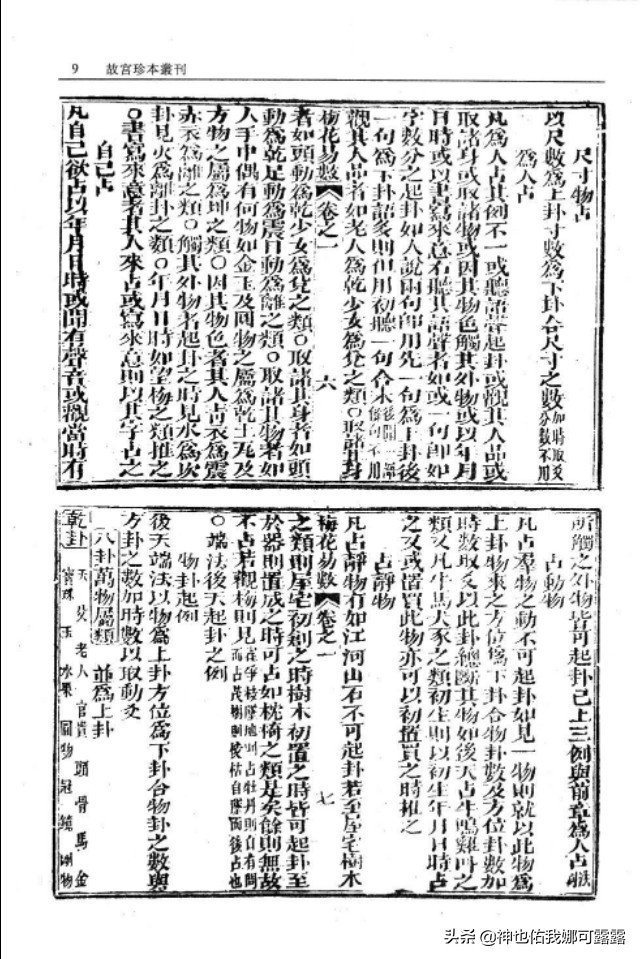 9 故宮珍本叢刊
尺寸物占
以尺數為上卦寸數為下卦合尺寸之數加時取爻分數不用
為人占
凡為人占其例不一或聽語聲起卦或觀其人品或
取諸身或取諸物或因其物色觸其外物或以年月
日時或以書寫來意右聽其語聲者如或一句即如
字數分之起卦如人說兩句即用先一句為上卦後
一句為下卦語多則但用初聽一句合末後聞一句餘句不用
觀其人品者如老人為乾少女為兌之類〇取諸其身
梅花易數 卷之一 六
者如頭動為乾足動為震目動為離之類〇取諸其物者如
人手中偶有何物如金玉及圓物之屬為乾土瓦及
方物之屬為坤之類〇因其物色者其人青衣為震
赤衣為離之類〇觸其外物者起卦之時見水為坎
卦見火為離卦之類〇年月日時如望梅之類推之
〇書寫來意者其人來占或寫來意則以其字占之
自己占
凡自己欲占以年月日時或聞有聲音或觀當時有
所觸之外物皆可起卦已上三例與前章為人占法同
占動物
凡占羣物之動不可起卦如見一物則就以此物為
上卦物來之方位為下卦合物卦數及方位卦數加
時數取爻以此卦總斷其物如後天占牛鳴雞叫之
類又凡牛馬犬豕之類初生則以初生年月日時占
之又或置買此物亦可以初置買之時推之
占靜物
凡占靜物有如江河山石不可起卦若至屋宅樹木
梅花易數 卷之一 七
之類則屋宅初剏之時樹木初置之時皆可起卦至
於器則置成之時可占如枕椅之類是矣餘則無故
不占若觀梅則見雀爭枝墜地而占牡丹則自有問而占茂樹則枝枯自墜而後占也
〇端法後天起卦之例
物卦起例
後天端法以物為上卦方位為下卦合物卦之數與
方卦之數加時數以取動爻
八卦萬物屬類 並為上卦
乾卦 天 父 老人 官貴 頭 骨 馬 金
寶珠 玉 水果 圓物 冠 鏡 剛物
头条 @神也佑我娜可露露